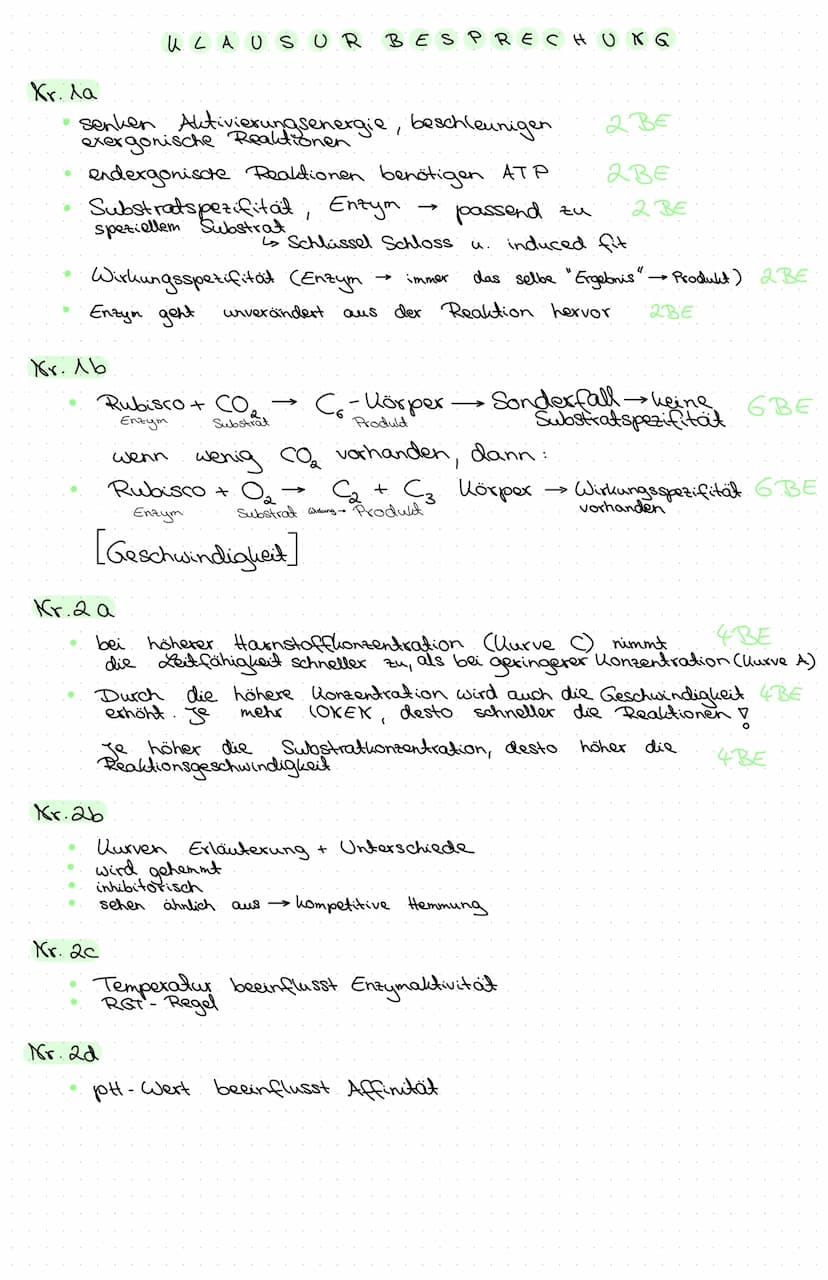 KLAUSUR BESPRECHUNG
Nr. 1a
• senken Aktivierungsenergie, beschleunigen 2BE
exergonische Reaktionen
• endergonische Reaktionen benötigen ATP 2BE
• Substratspezifität, Enzym → passend zu 2BE
speziellem Substrat
↳ Schlüssel Schloss u. induced fit
• Wirkungsspezifität (Enzym → immer das selbe "Ergebnis" → Produkt) 2BE
• Enzym geht unverändert aus der Reaktion hervor 2BE
Nr. 1b
• Rubisco + CO₂ → C₆-Körper → Sonderfall → keine 6BE
Enzym Substrat Produkt Substratspezifität
wenn wenig CO₂ vorhanden, dann:
• Rubisco + O₂ → C₂ + C₃ Körper → Wirkungsspezifität 6BE
Enzym Substrat → Produkt vorhanden
[Geschwindigkeit]
Nr. 2a
• bei höherer Harnstoffkonzentration (Kurve C) nimmt 4BE
die Leitfähigkeit schneller zu, als bei geringerer Konzentration (Kurve A)
• Durch die höhere Konzentration wird auch die Geschwindigkeit 4BE
erhöht. Je mehr, desto schneller die Reaktionen!
Je höher die Substratkonzentration, desto höher die 4BE
Reaktionsgeschwindigkeit
Nr. 2b
• Kurven Erläuterung + Unterschiede
• wird gehemmt
• inhibitorisch
• sehen ähnlich aus → kompetitive Hemmung
Nr. 2c
• Temperatur beeinflusst Enzymaktivität
• RGT-Regel
Nr. 2d
• pH-Wert beeinflusst Affinität